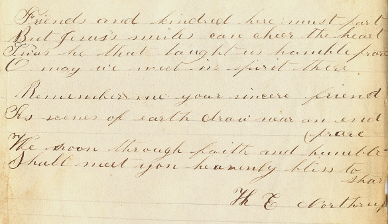 Friends and kindred here must part
But Jesus's smiles can cheer the heart
Twas he that taught us humble prare
O may we meet in spirit there
Remember me your sincere friend
As scenes of earth draw near an end
(prare
We soon through faith and humble
Shall meet yon heavenly bliss to
share
H E Northrup